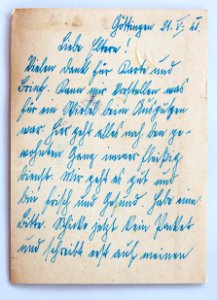 Göttingen 21. V. 43.
Liebe Eltern!
Vielen Dank für Karte und
Brief. Kann mir vorstellen was
für ein Wirbel beim Ausputzen
war. Hier geht alles nach den ge-
wohnten Gang, immer fleißig
Dienst. Mir geht es gut und
bin frisch und gesund. Habe eine
Bitte. Schicke jetzt kein Paket
und schreibt erst auf meinen